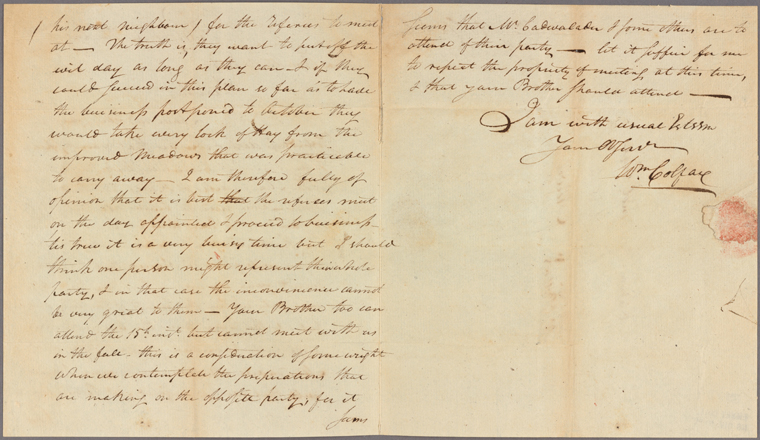 his next neighbour) for the referees to meet
at — The truth is, they want to put off the
evil day as long as they can & if they
could succeed in this plan so far as to have
the buisiness postponed to October they
would take every lock of Hay from the
improved Meadows that was practicable
to carry away — I am therefore fully of
opinion that it is best that the referees meet
on the day appointed & proceed to buisiness
tis true it is a very buisy time but I should
think one person might represent the whole
party, & in that case the inconvenience cannot
be very great to them — Your Brother too can
attend the 15th inst. but cannot meet with us
in the fall — this is a consideration of some weight
when we contemplate the preparations that
are making on the opposite party, for it
seems
seems that Mr. Cadwalader & some others are to
attend of their party — let it suffice for me
to repeat the propriety of meeting at this time,
& that your Brother should attend —
I am with usual Esteem
Your Obt Servt
Wm. Colfax